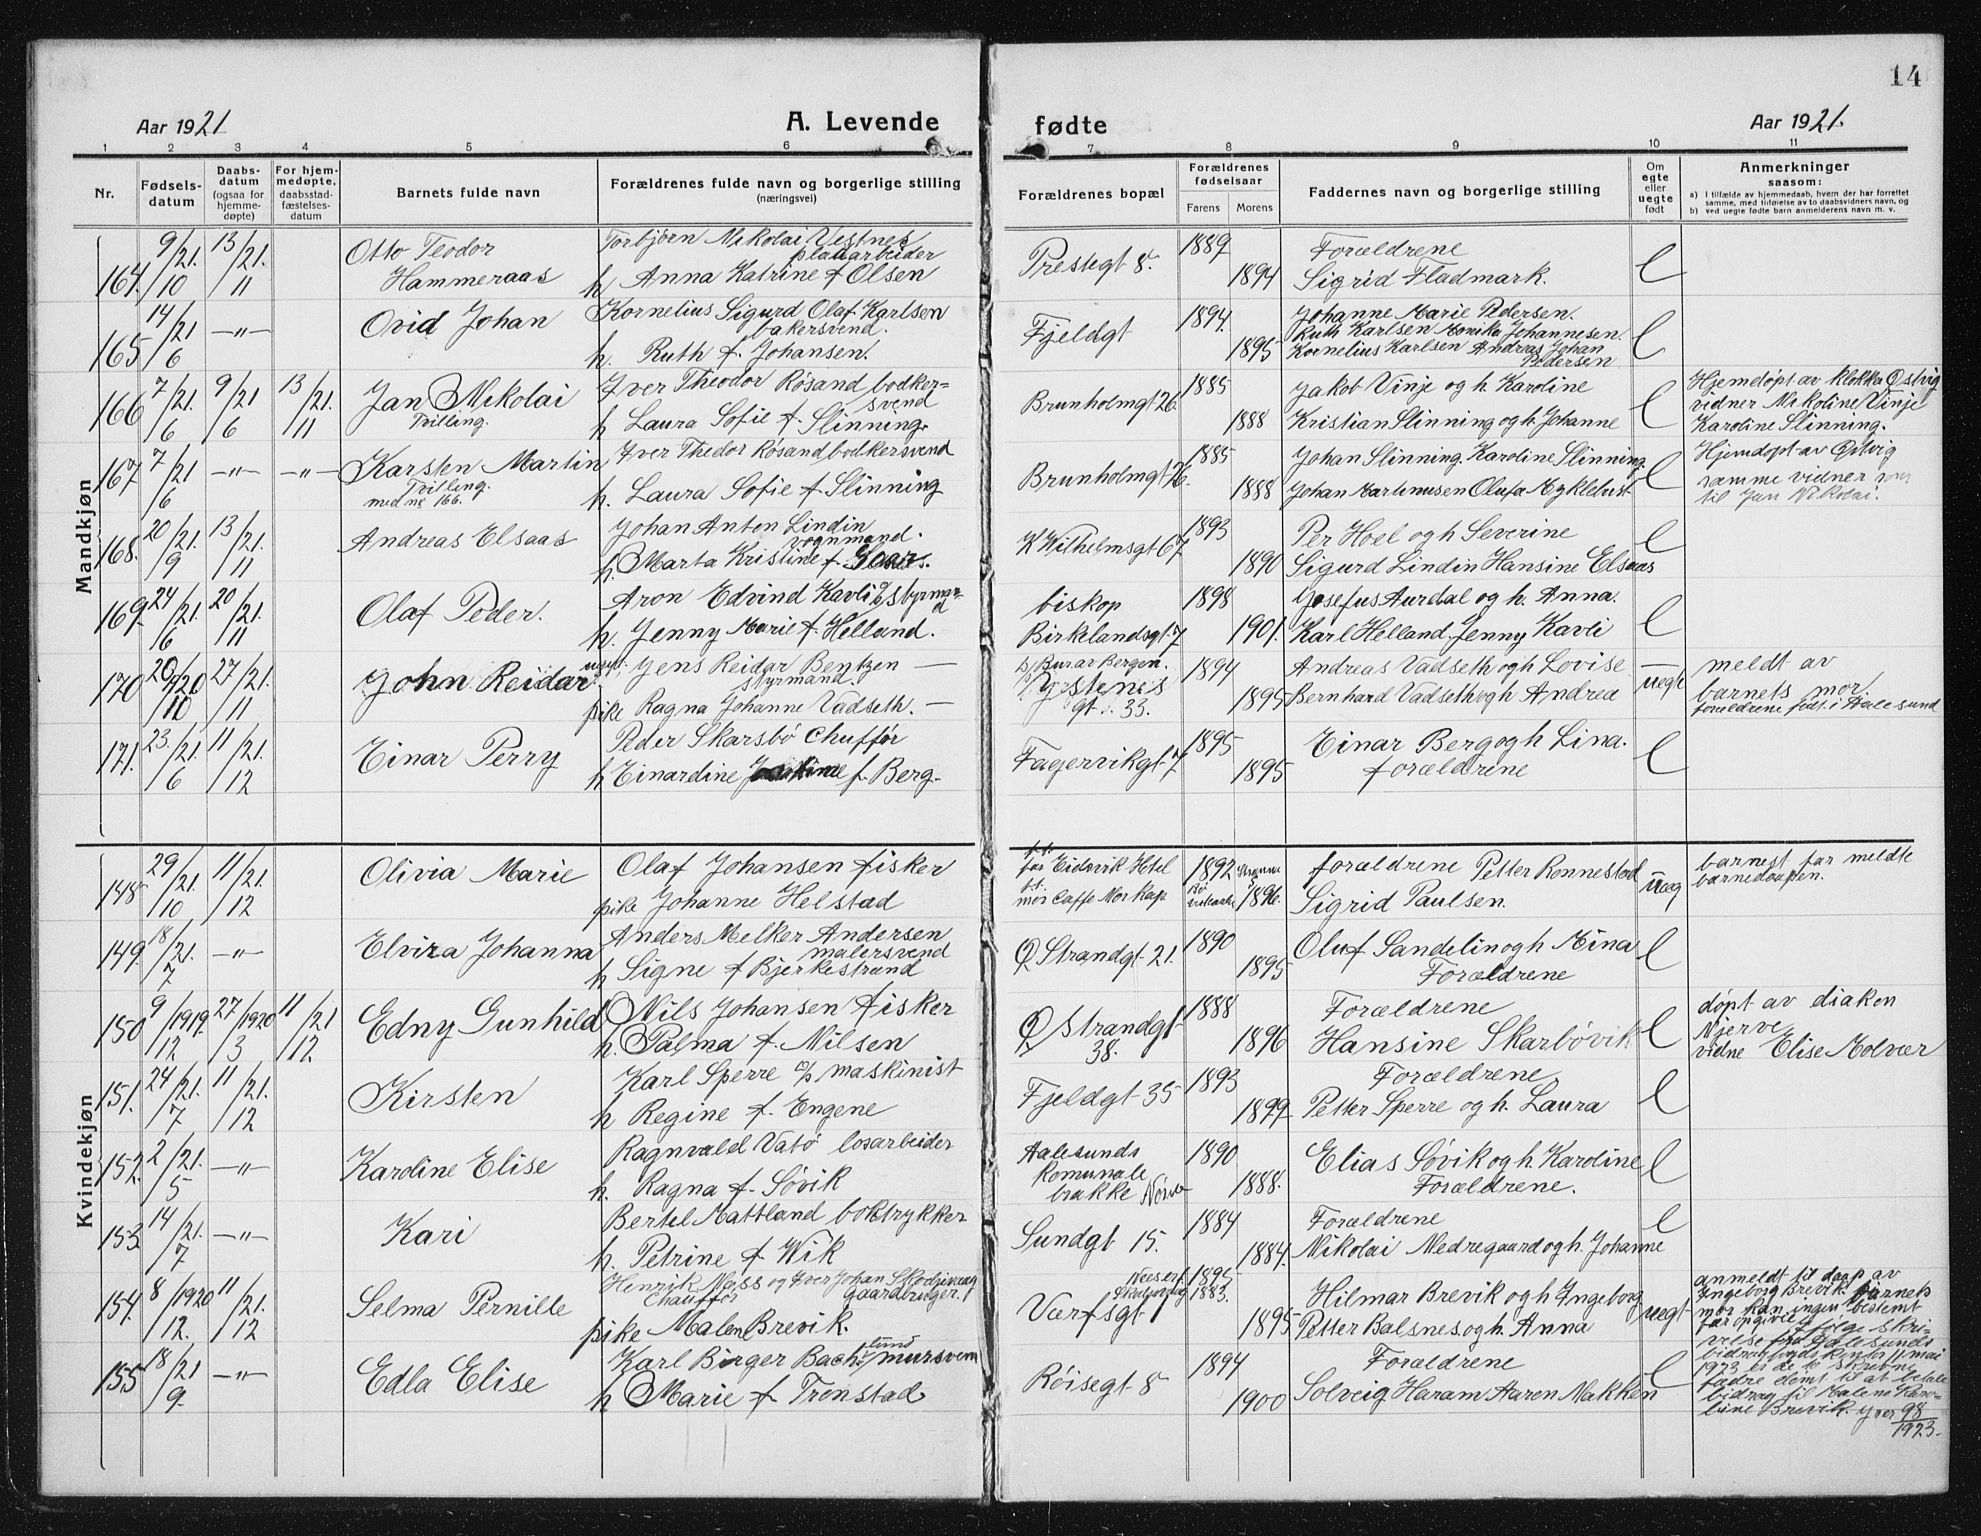 14
Aar 1921
A. Levende
fødte
Aar 1921.
1 2 3 4 5 6 7 8 9 10 11
Nr.
Fødsels-
datum
Daabs-
datum
(ogsaa for
hjemme-
døpte)
For hjem-
medøpte,
daabsstad-
fæstelses-
datum
Barnets fulde navn
Forældrenes fulde navn og borgerlige stilling
(næringsvei)
Forældrenes bopæl
Forældrenes
fødselsaar
Farens Morens
Faddernes navn og borgerlige stilling
Om
egte
eller
uegte
født
Anmerkninger
saasom:
a) I tilfælde av hjemmedaab, hvem der har forrettet
samme, med tilføielse av to daabsvidners navn, og
b) ved uegte fødte barn anmelderens navn m. v.
Mandkjøn
164. 9/10 21. 13/11 21. Otto Teodor
Hammeraas
Torbjørn Nikolai Vestnes
platarbeider
h. Anna Katrine f. Olsen
Prestegt 8. 1889 1894
Forældrene
Sigrid Fladmark.
165 14/6 21 -"- Ovid Johan
Kornelius Sigurd Olaf Karlsen
bakersvend.
h. Ruth f. Johansen.
Fjeldgt 1894. 1895
Johanne Marie Pedersen.
Ruth Karlsen Monika Johannesen.
Kornelius Karlsen Andreas Johan
Pedersen
166 7/6 21. 9/6 21 13/11 21. Jan Nikolai
Tvilling.
Iver Theodor Røsand bodker-
svend
h Laura Sofie f. Slinning.
Brunholmgt 26. 1885 1888
Jakob Vinje og h. Karoline
Kristian Slinning og h. Johanne
Hjemdøpt av klokker Østvig
vidner Nikoline Vinje
Karoline Slinning.
167 7/6 21 -"- -"- Karsten Martin
Tvilling
med nr 166.
Iver Theodor Røsand bodkersvend
h. Laura Sofie f Slinning
Brunholmgt 26. 1885 1888
Johan Slinning. Karoline Slinning.
Johan Martinusen Olufa Myklebust
Hjemdøpt av Østvig
samme vidner som
til Jan Nikolai.
168. 20/9 21. 13/11 21. Andreas Elsaas
Johan Anton Lindin
vognmand.
h. Marta Kristine f.
K Wilhelmsgt 67 1893 1890
Per Hoel og h Severine
Sigurd Lindin Hansine Elsaas
169. 24/6 21. 20/11 21. Olaf Peder.
Aron Edvind Kavli styrmand
h. Jenny Marie f. Helland.
biskop
Birkelandsgt. 7 1898 1901.
Josefus Aurdal og h. Anna.
Karl Helland. Jenny Kavli
170 20/10 20 27/11 21. John Reidar
ugift. Jens Reidar Bentzen —
styrmand.
pike Ragna Johanne Vadseth. —
Bergen.
gt. 33. 1894 1895
Andreas Vadseth og h Lovise
Bernhard Vadseth og h Andrea
uegte
meldt av
barnets mor
forældrene født i Aalesund
171. 23/6 21. 11/12 21. Einar Perry
Peder Skarsbö Chuffør
h Einardine f. Berg.
Fagervikgt 7 1895 1895
Einar Berg og h Lina.
forældrene
Kvindekjøn
148 29/10 21. 11/12 21. Olivia Marie
Olaf Johansen fisker
pike Johanne Helstad
far Eidsvik Hotel
mor Caffe Nor Kap 1892 1896.
forældrene Petter Ronnestad
Sigrid Paulsen.
uæg
barnest far meldte
barnedaapen.
149. 18/7 21. -"- Elvira Johanna
Anders Melker Andersen
malersvend
h Signe f Bjerkestrand
Ø Strandgt. 21. 1890 1895
Oluf Sandelin og h Mina
Forældrene
150 9/12 1919. 27/3 1920 11/12 21 Edny Gunhild
Nils Johansen fisker
h. Palma f. Nilsen
Ø strandgt
38. 1888 1896
Forældrene
Hansine Skarbøvik
døpt av diaken
Njerve
vidne Elise Molvær
151. 24/7 21. 11/12 21. Kirsten
Karl Sperre maskinist
h Regine f. Engene
Fjeldgt 35 1893 1899
Forældrene
Petter Sperre og h. Laura
152. 2/5 21. -"- Karoline Elise
Ragnvald Vatö losarbeider
h. Ragna f. Søvik
Aalesunds
komunale
brakke Nørve 1890 1888.
Elias Søvik og h. Karoline
Forældrene.
153 14/7 21. -"- Kari
Bertel Mattland boktrykker
h. Petrine f. Wik
Sundgt 15. 1884 1884.
Forældrene
Nikolai Medregaard og h. Johanne
154. 8/12. 1920 11/12 21. Selma Pernille
Henrik og Iver Johan
Chauffør Gaardbruger.
pike Malene Brevik.
Værfsgt 1895 1883. 1895
Hilmar Brevik og h Ingeborg
Petter Balsnes og h. Anna
uegt
anmeldt til daap av
Ingeborg Brevik. Barnets
mor kan ingen bestemt
far opgive. Ifølge skri-
velse fra Aalesunds
bidragsfogdskontor 11 mai
1923 er de to skrevne
fædre dømt til at betale
bidrag til Malene Karo-
line Brevik. 98
1923.
155 18/9. 21 -"- Edla Elise
Karl Birger mursvend
h Marie f Tronstad
Röisegt 8 1894 1900
Forældrene
Solveig Haram Aaren Nakken